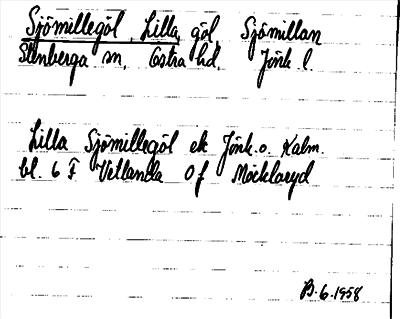 Sjömillegöl, Lilla, göl Sjömillan
Stenberga sn. Östra hd. Jönk l.
Lilla Sjömillegöl ek Jönk. o. Kalm.
bl. 6 F Vetlanda Of Möcklaryd
B. 6. 1958